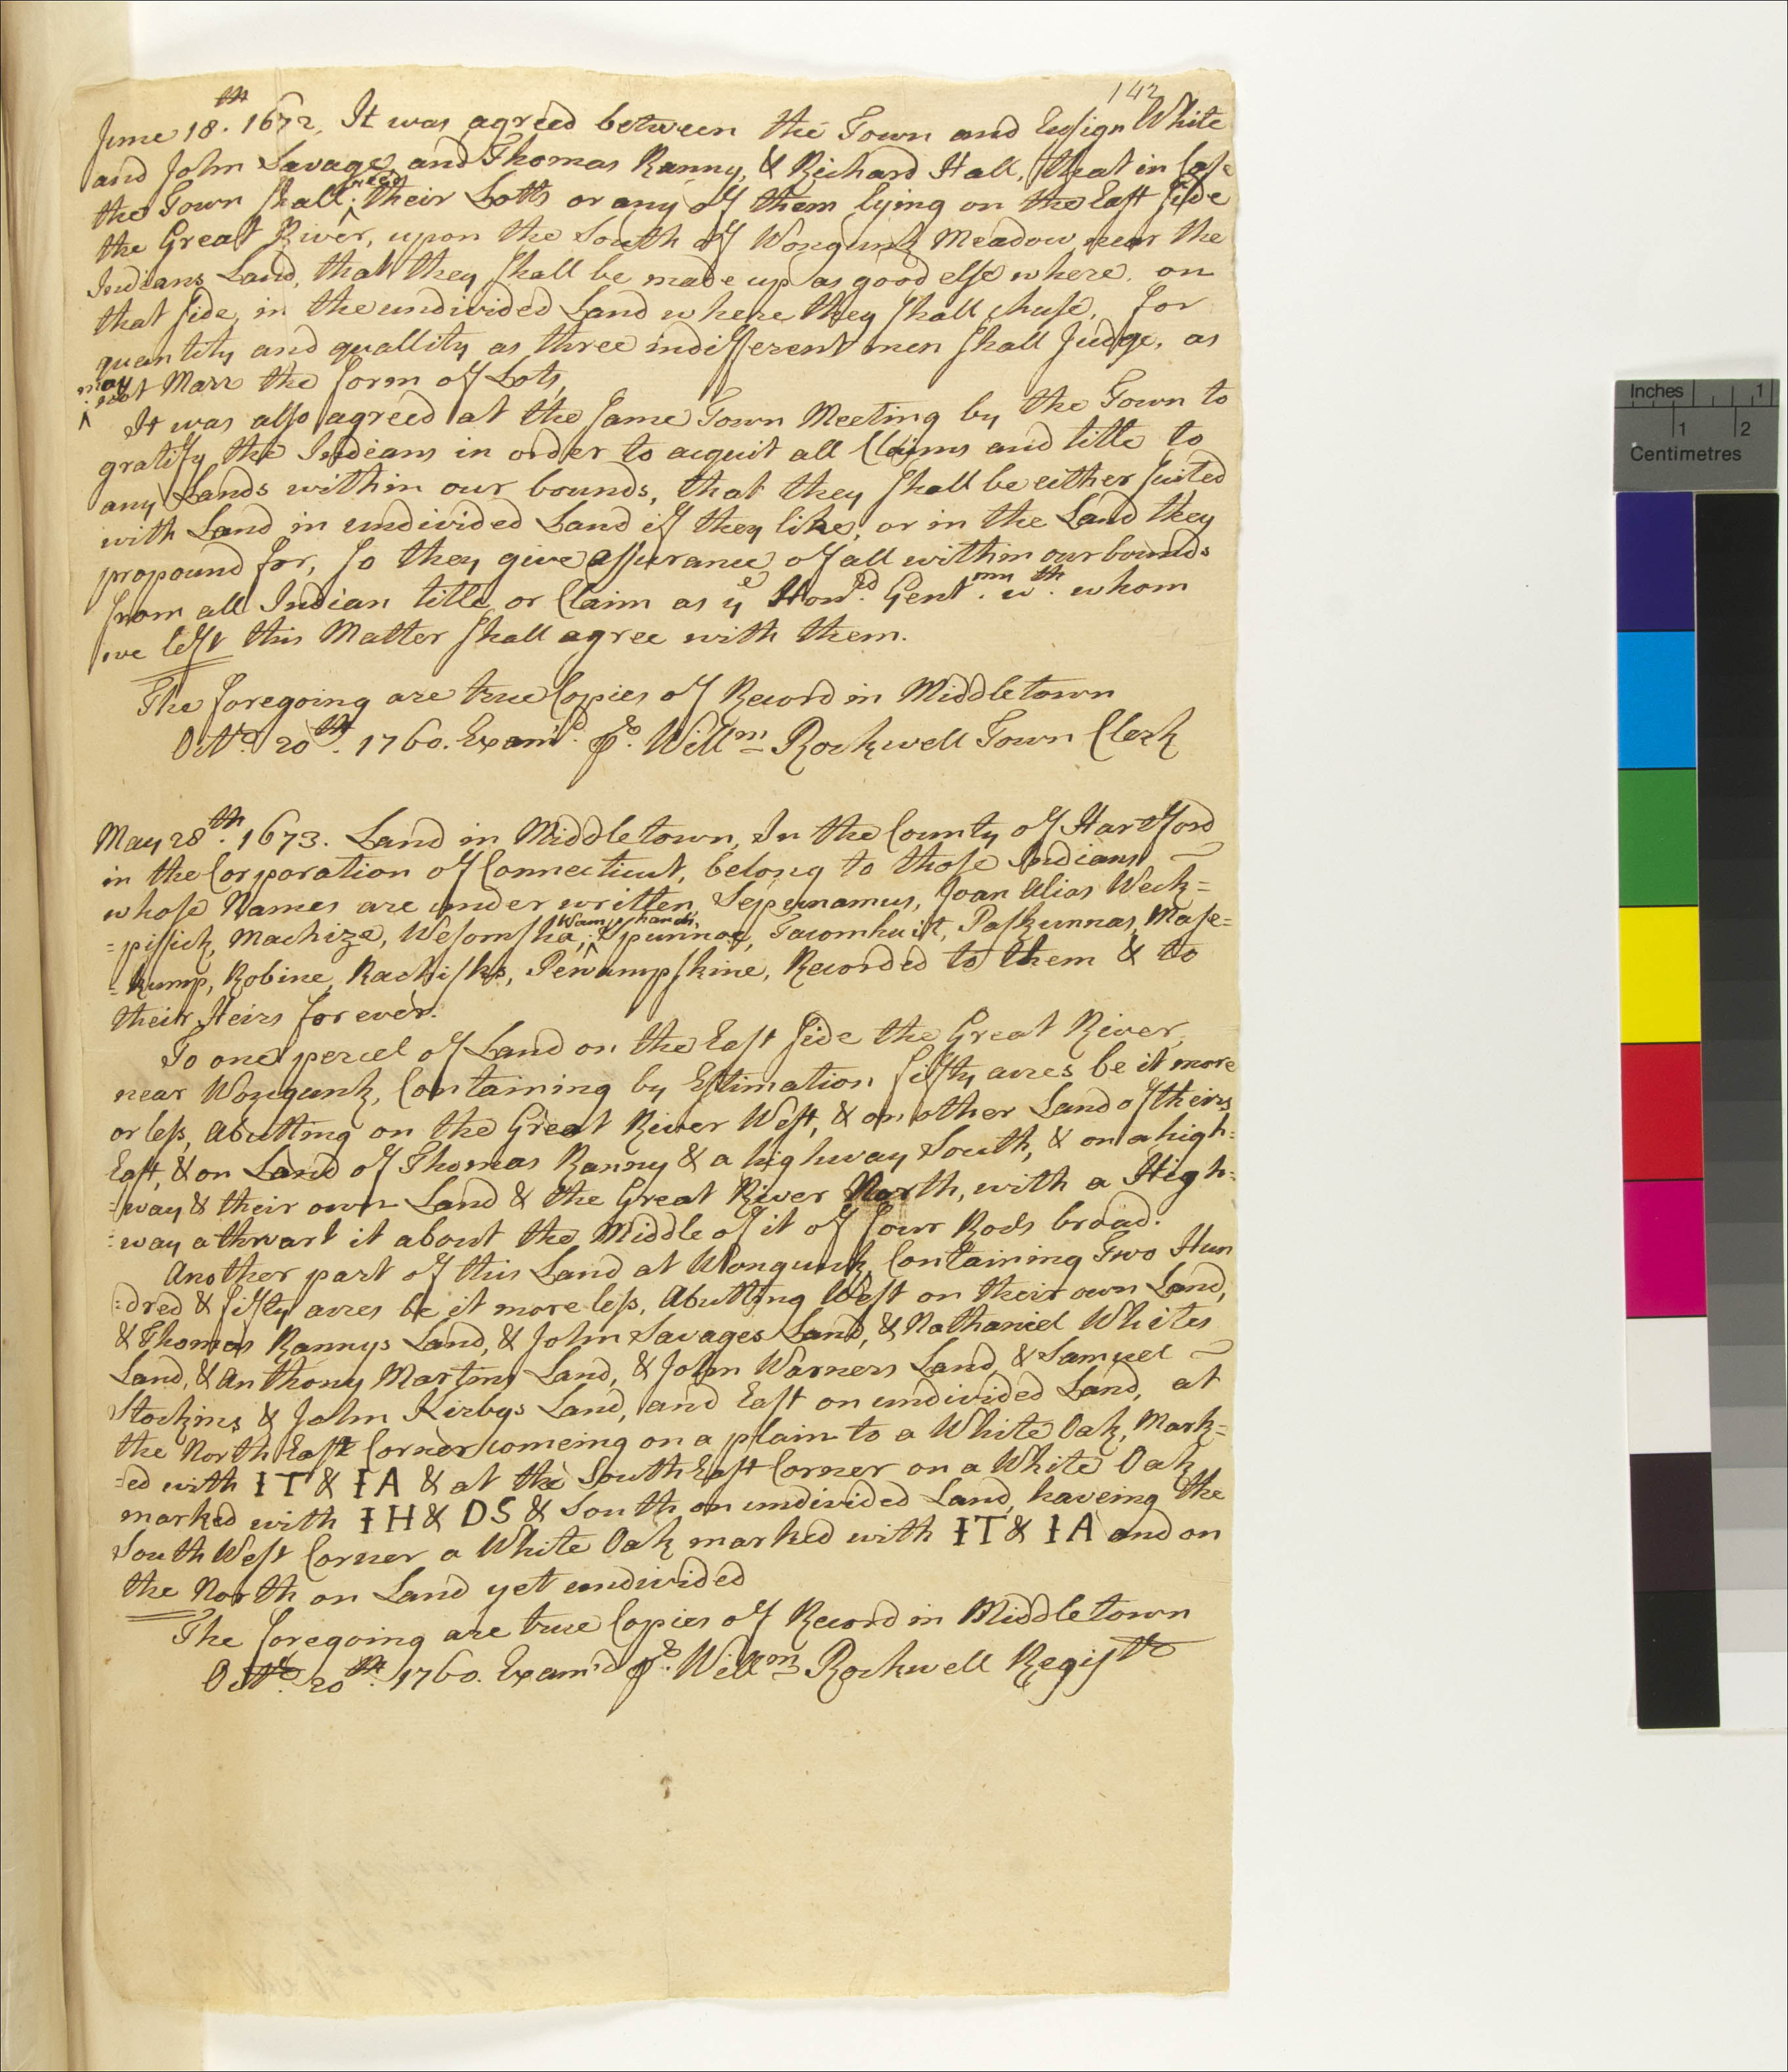 142
June 18.th 1672, It was agreed between the Town and Ensign White
and John Savage, and Thomas Ranny, & Richard Hall, that in Case
the Town shall need their Lotts or any of them lying on the East Side
the Great River, upon the South of Wongunk Meadow near the
Indians Land, that they shall be made up as good else where, on
that side, in the undivided Land where they shall chuse, for
quantity and quallity as three indifferent men shall Judge, as
may not Marr the form of Lots,
It was also agreed at the same Town Meeting by the Town to
gratify the Indians in order to acquit all Claims and title to
any Lands within our bounds, that they shall be either suited
with Land in undivided Land if they like, or in the Land they
propound for, so they give assurance of all within our bounds
from all Indian title or Claim as ye Hon.d Gent.mn w.th whom
we left this Matter shall agree with them.
The foregoing are true Copies of Record in Middletown
Octr. 20th. 1760. Examd. pr. Willm Rockwell Town Clerk
May 28th. 1673. Land in Middletown, In the County of Hartford
in the Corporation of Connecticut, belong to those Indians
whose Names are under written, Sepunamus, Joan Alias Weck=
=pissick, Machize, Wesomsha, Wamphanch, Spunnoe, Tacomhuit, Paskunnas, Mase=
=kump, Robine, Rachisks, Penwampskine, Recorded to them & to
their Heirs for ever.
To one percel of Land on the East side the Great River,
near Wongunk, Containing by Estimation fifty acres be it more
or less, Abutting on the Great River West, & on other Land of theirs
East, & on Land of Thomas Ranny & a highway South, & on a high=
=way & their own Land & the Great River North, with a High=
=way athwart it about the Middle of it of four Rods broad.
Another part of this Land at Wongunk, Containing Two Hun
=dred & fifty acres be it more less, Abutting West on their own Land,
& Thomas Rannys Land, & John Savages Land, & Nathaniel Whites
Land, & Anthony Martins Land, & John Warners Land, & Samuel
Stockins & John Kirbys Land, and East on undivided Land, at
the North East Corner comeing on a plain to a White Oak, Mark=
=ed with IT & IA & at the South East Corner on a White Oak
marked with IH & DS & South on undivided Land, haveing the
South West Corner a White Oak marked with IT & IA and on
the North on Land yet undivided
The foregoing are true Copies of Record in Middletown
Octr. 20th. 1760. Exam'd pr. Willm Rockwell Registr
Inches 1
1 2
Centimetres